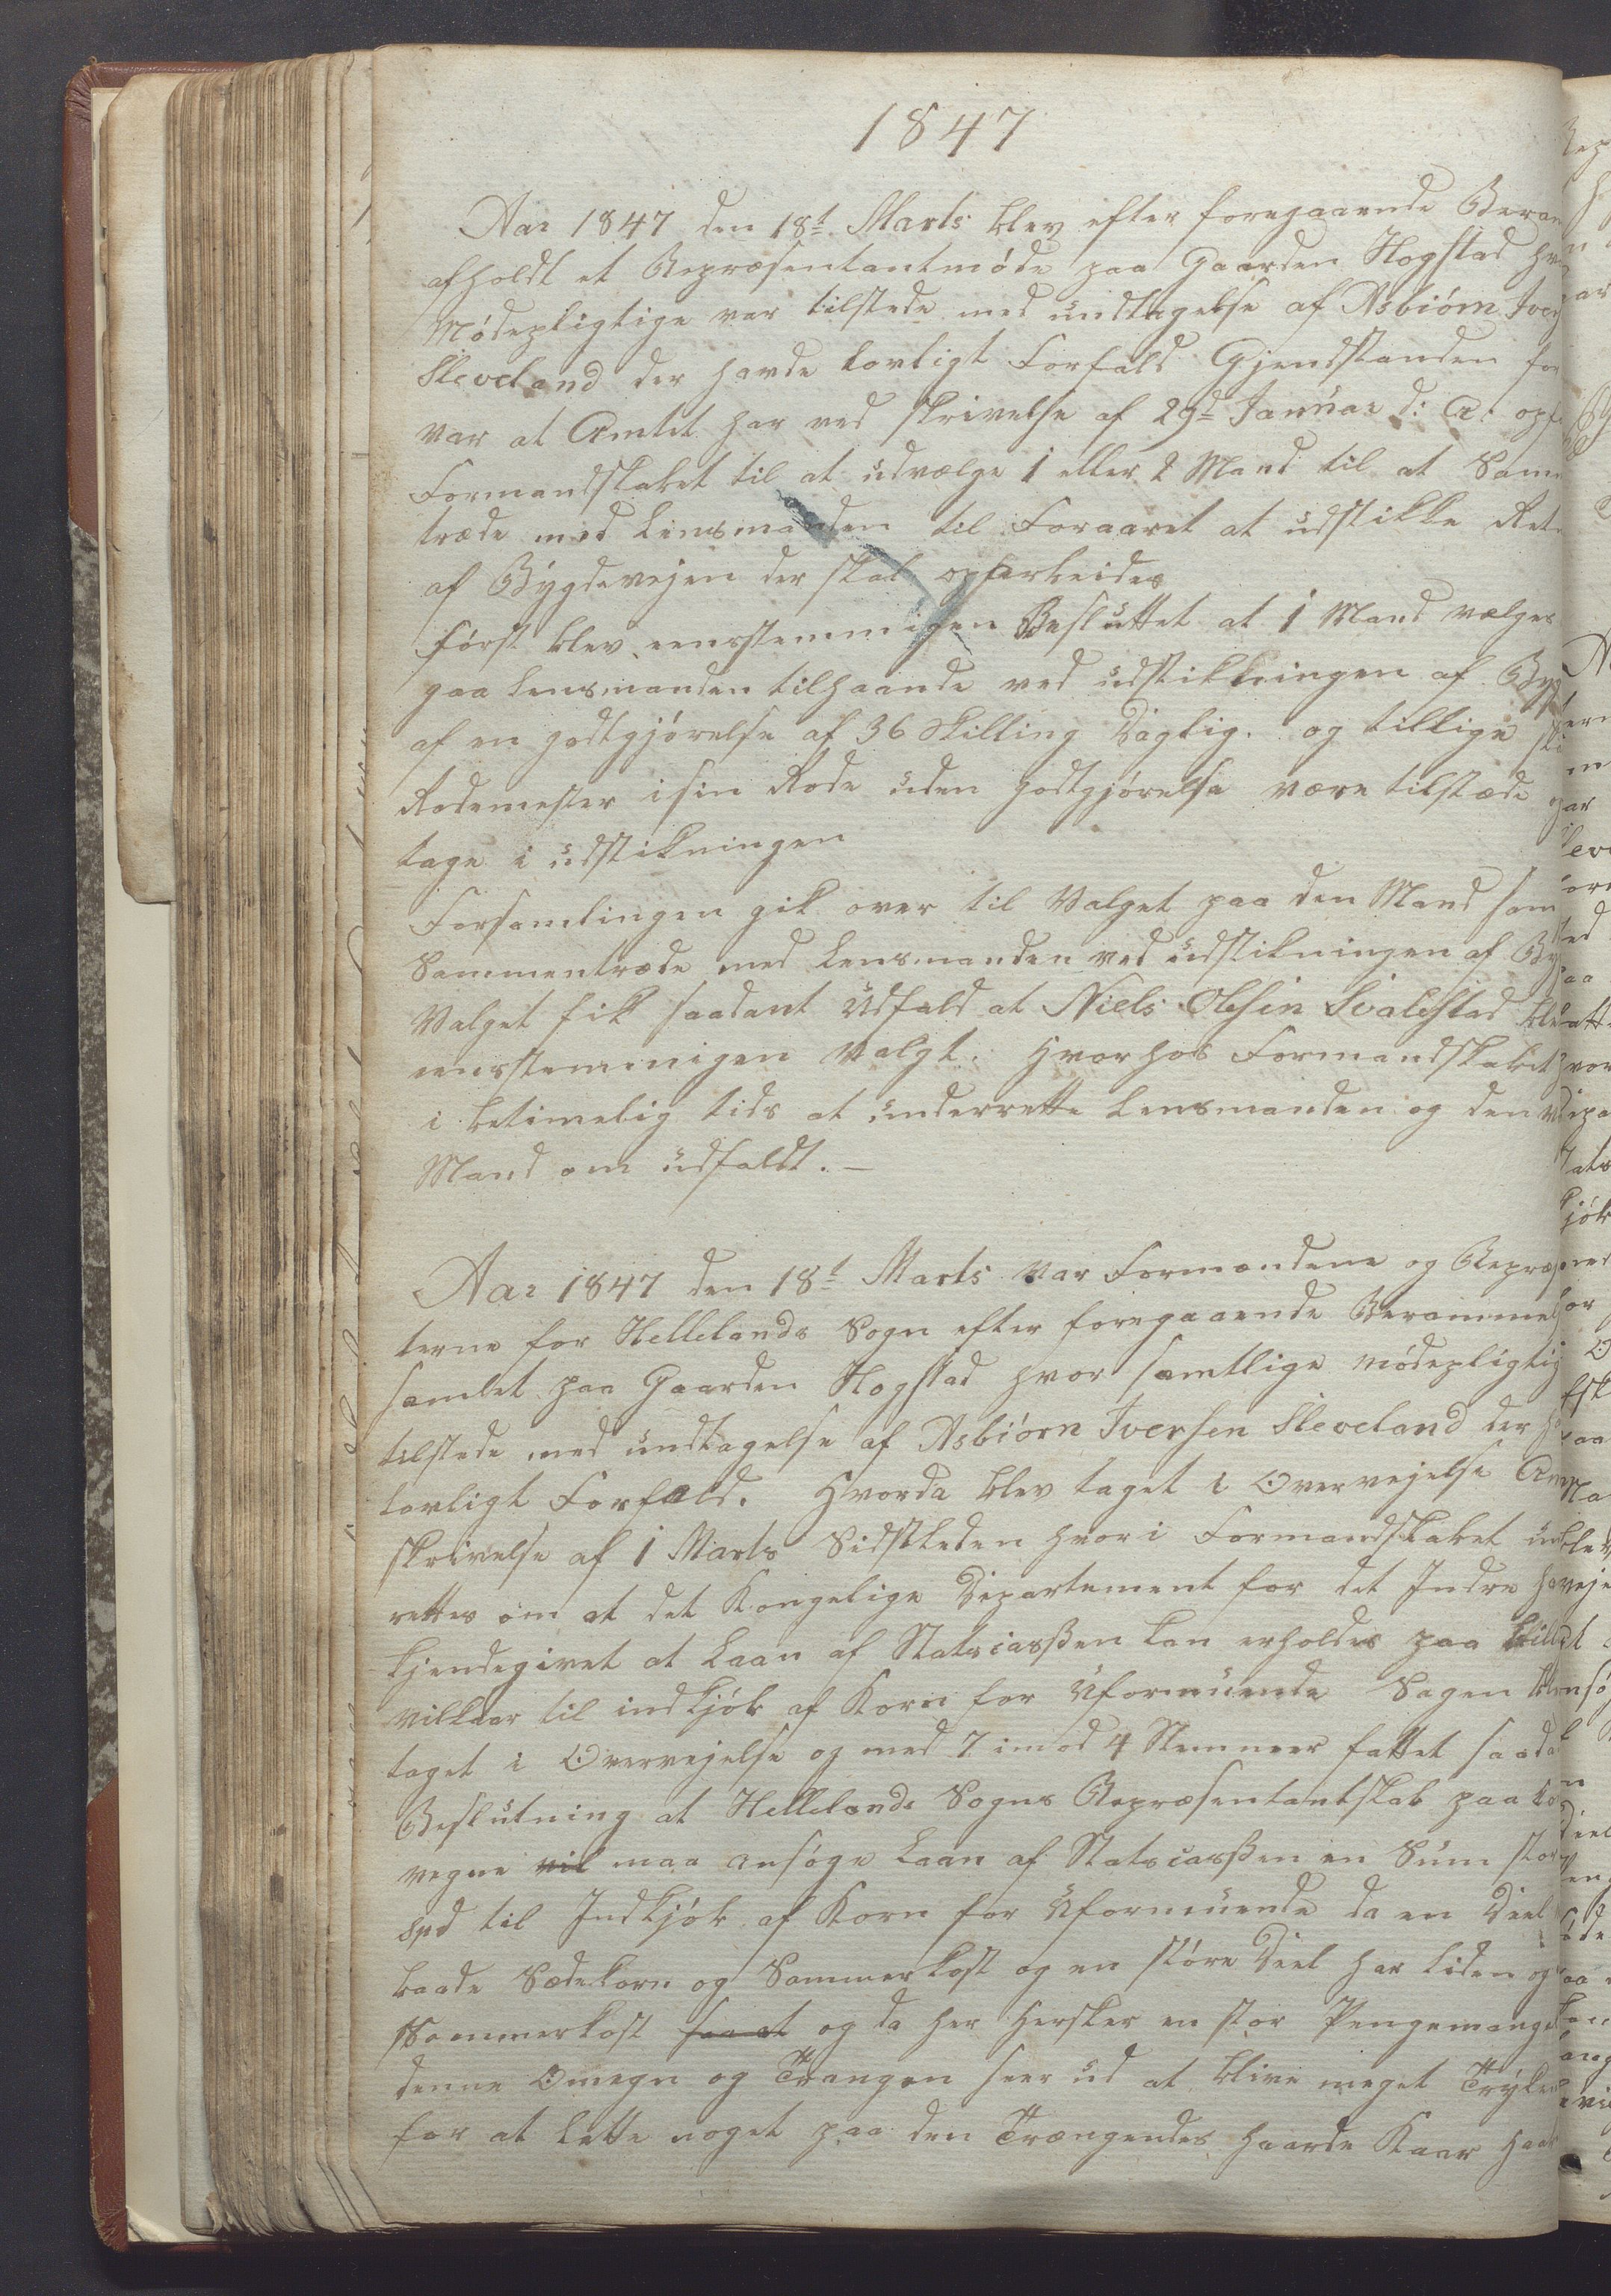 1847
Aar 1847 den 18t Marts blev efter foregaaende Beram
afholdt et Repræsentantmøde paa Gaarden Hogstad hv
Mødepligtige var tilstede med undtagelse af Asbiørn Iver
Sleveland der havde lovligt Forfald Gjendstanden for
var at Amtet har ved skrivelse af 29d Januar d: A: opf
Formandskabet til at udvælge 1 eller 2 Mand til at Samm
træde med Lensmanden til Foraaret at udstikke Retn
af Bygdevejen der skal oparbeides
først blev eensstemmigen Besluttet at 1 Mand vælges
gaa Lensmanden tilhaande ved udstikkningen af Byg
af en godtgjørelse af 36 Skilling Daglig. og tillige sk
Rodemester i sin Rode uden godtgjørelse være tilstæde
tage i udstikningen
Forsamlingen gik over til Valget paa den Mand som
Sammentræde med Lensmanden ved udstikningen af By
Valget fik saadant Udfald at Niels Olsen Svalestad blev
eensstemmigen Valgt. Hvorhos Formandskabet
i betimelig tids at underrette Lensmanden og den v
Mand om udfaldt. —
Aar 1847 den 18t Marts var Formændene og Repræs
terne for Hellelands Sogn efter foregaaende Berammels
samlet paa Gaarden Hogstad hvor samtlige mødepligtig
tilstede med undtagelse af Asbiørn Iversen Sleveland der ha
lovligt Forfald. Hvorda blev taget i Overvejelse Am
skrivelse af 1 Marts Sidstleden hvori Formandskabet un
rettes om at det Kongelige Departement for det Indre ha
kjendegivet at Laan af Statscasßen kan erholdes paa bill
vilkaar til indkjøb af Korn for Uformuende Sagen blev
taget i Overvejelse og med 7 imod 4 Stemmer fattet saada
Beslutning at Hellelands Sogns Repræsentantskab paa ko
vegne vil maa ansøge Laan af Statscasßen en Sum stor
Spd til Indkjøb af Korn for Uformuende da en Deel
baade Sædekorn og Sommerkost og en støre Deel har liden og
Sommerkost saa at og da her Hersker en stor Pengemangel
denne Omegn og Trangen seer ud at blive meget Tryken
for at lette noget paa den Trængendes haarde Kaar haab